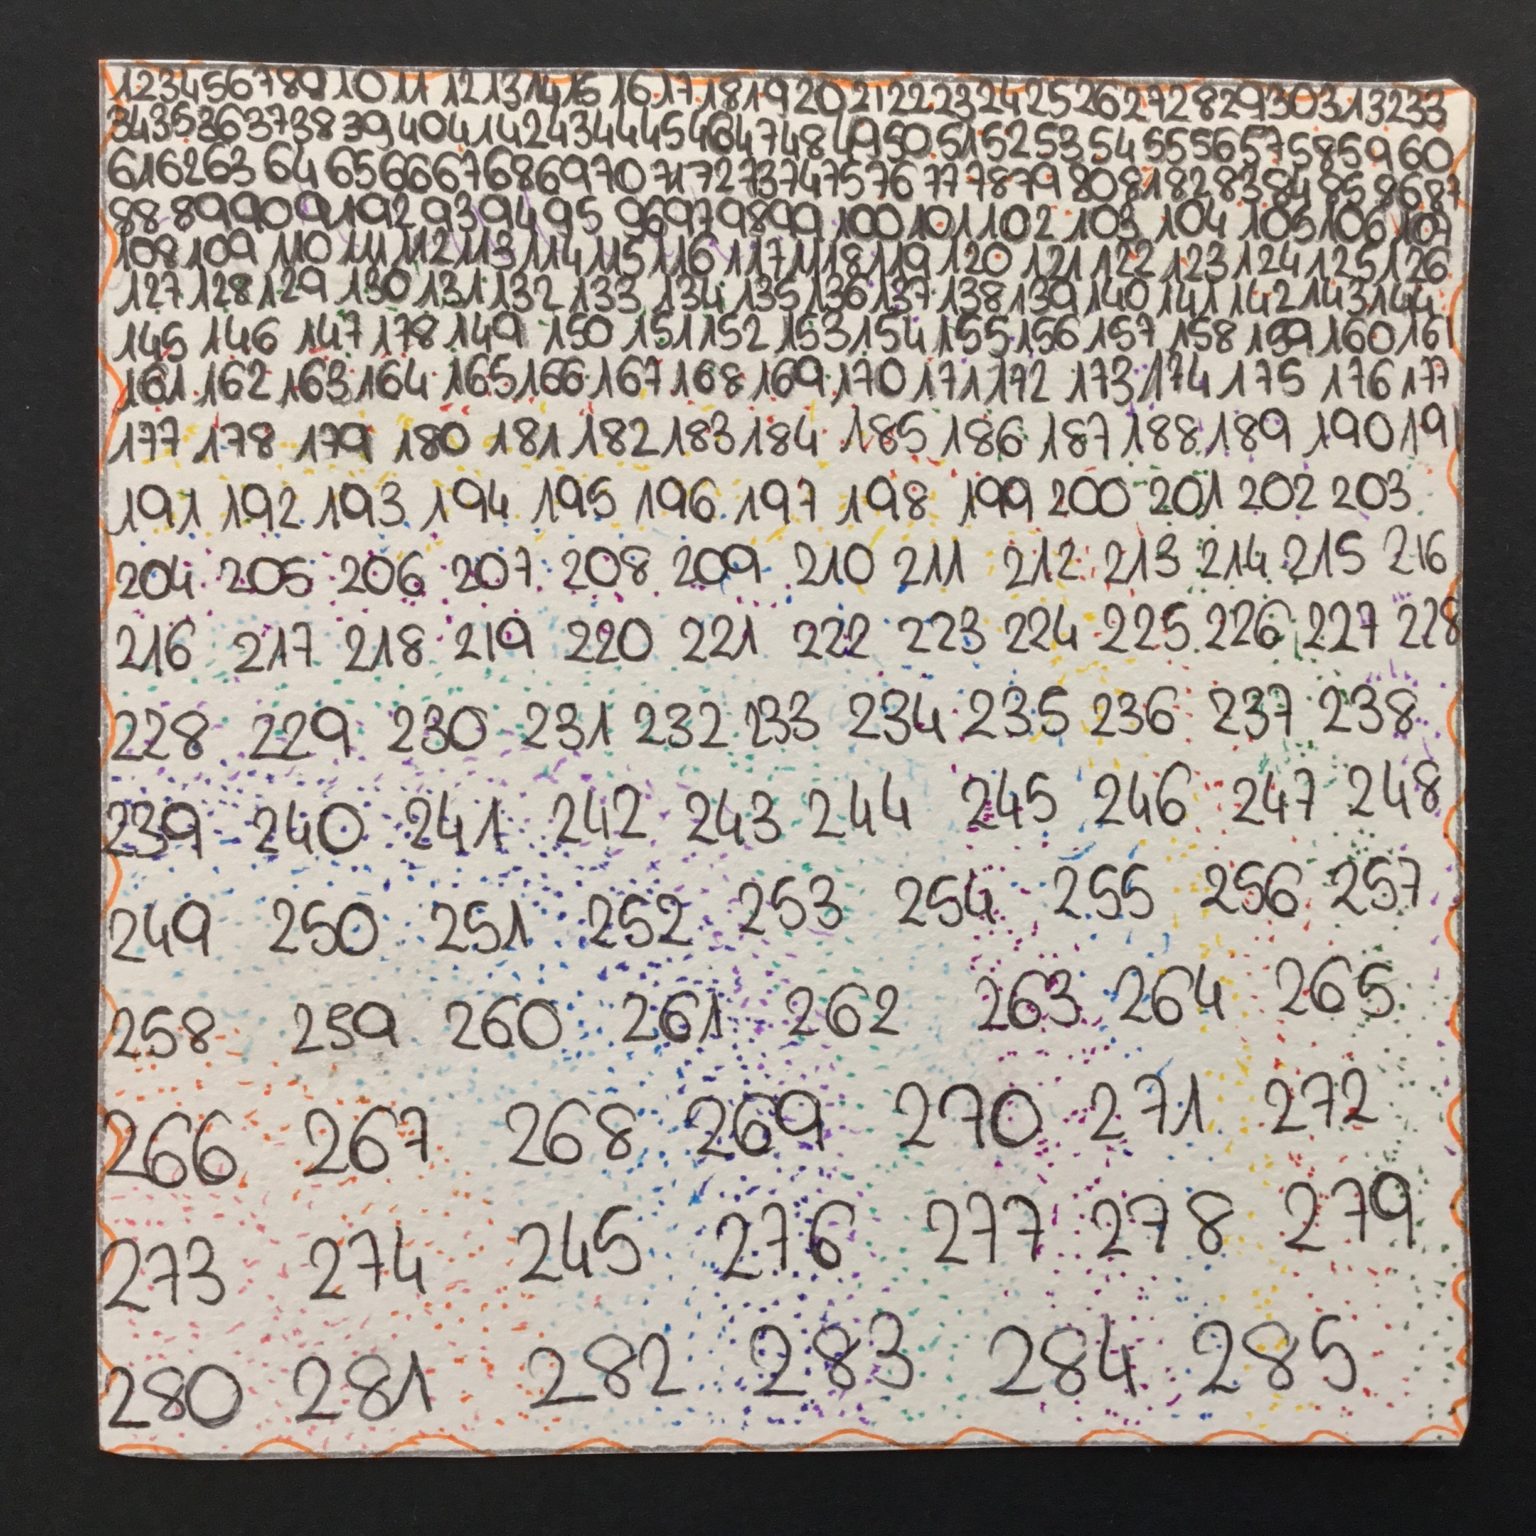 1 2 3 4 5 6 7 8 9 10 11 12 13 14 15 16 17 18 19 20 21 22 23 24 25 26 27 28 29 30 31 32 33
34 35 36 37 38 39 40 41 42 43 44 45 46 47 48 49 50 51 52 53 54 55 56 57 58 59 60
61 62 63 64 65 66 67 68 69 70 71 72 73 74 75 76 77 78 79 80 81 82 83 84 85 86 87
88 89 90 91 92 93 94 95 96 97 98 99 100 101 102 103 104 105 106 107
108 109 110 111 112 113 114 115 116 117 118 119 120 121 122 123 124 125 126
127 128 129 130 131 132 133 134 135 136 137 138 139 140 141 142 143 144
145 146 147 178 149 150 151 152 153 154 155 156 157 158 159 160 161
161 162 163 164 165 166 167 168 169 170 171 172 173 174 175 176 177
177 178 179 180 181 182 183 184 185 186 187 188 189 190 191
191 192 193 194 195 196 197 198 199 200 201 202 203
204 205 206 207 208 209 210 211 212 213 214 215 216
216 217 218 219 220 221 222 223 224 225 226 227 228
228 229 230 231 232 233 234 235 236 237 238
239 240 241 242 243 244 245 246 247 248
249 250 251 252 253 254 255 256 257
258 259 260 261 262 263 264 265
266 267 268 269 270 271 272
273 274 245 276 277 278 279
280 281 282 283 284 285